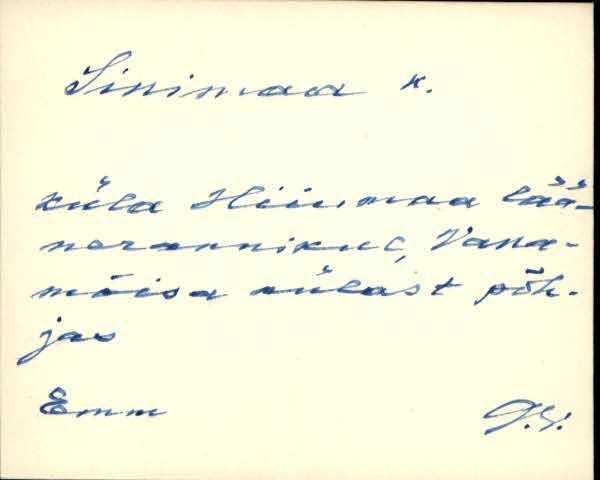 Sinimaa k.
küla Hiiumaa lää-
nerannikul, Vana-
mõisa külast põh-
jas
Emm